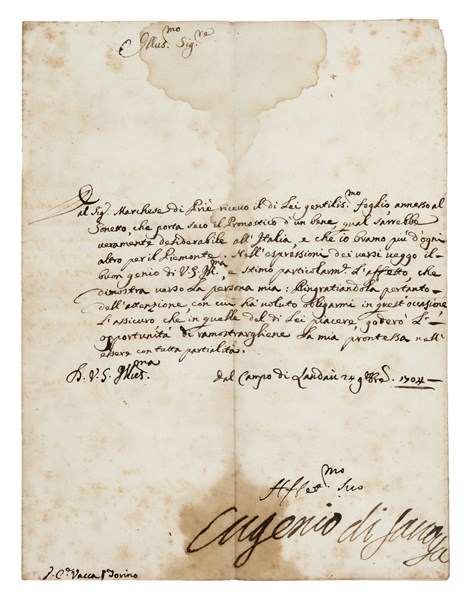 Illus.mo Sig.re
Dal Sig.r Marchese di Priè ricevo il di Lei gentilis.mo foglio annesso al
Sonetto, che porta seco il Pronostico d'un bene qual sarrebbe
veramente desiderabile all'Italia, e che io bramo più d'ogni
altro per il Piemonte. Nell'espressioni dei versi veggo il
buon genio di V.S. Ill.ma, e stimo particolarm.te l'affetto, che
dimostra verso La persona mia: Ringratiandola pertanto
dell'attenzione, con cui hà voluto obligarmi in quest'occasione
L'assicuro che in quelle del di Lei piacere, goderò L'
opportunità di ramostrarghene La mia prontessa nell'
essere con tutta partialità.
D. V. S. Illus.ma Dal Campo di Landau 24 9bre 1704
Affet.mo Suo
Eugenio di Savoya
Vacca Torino